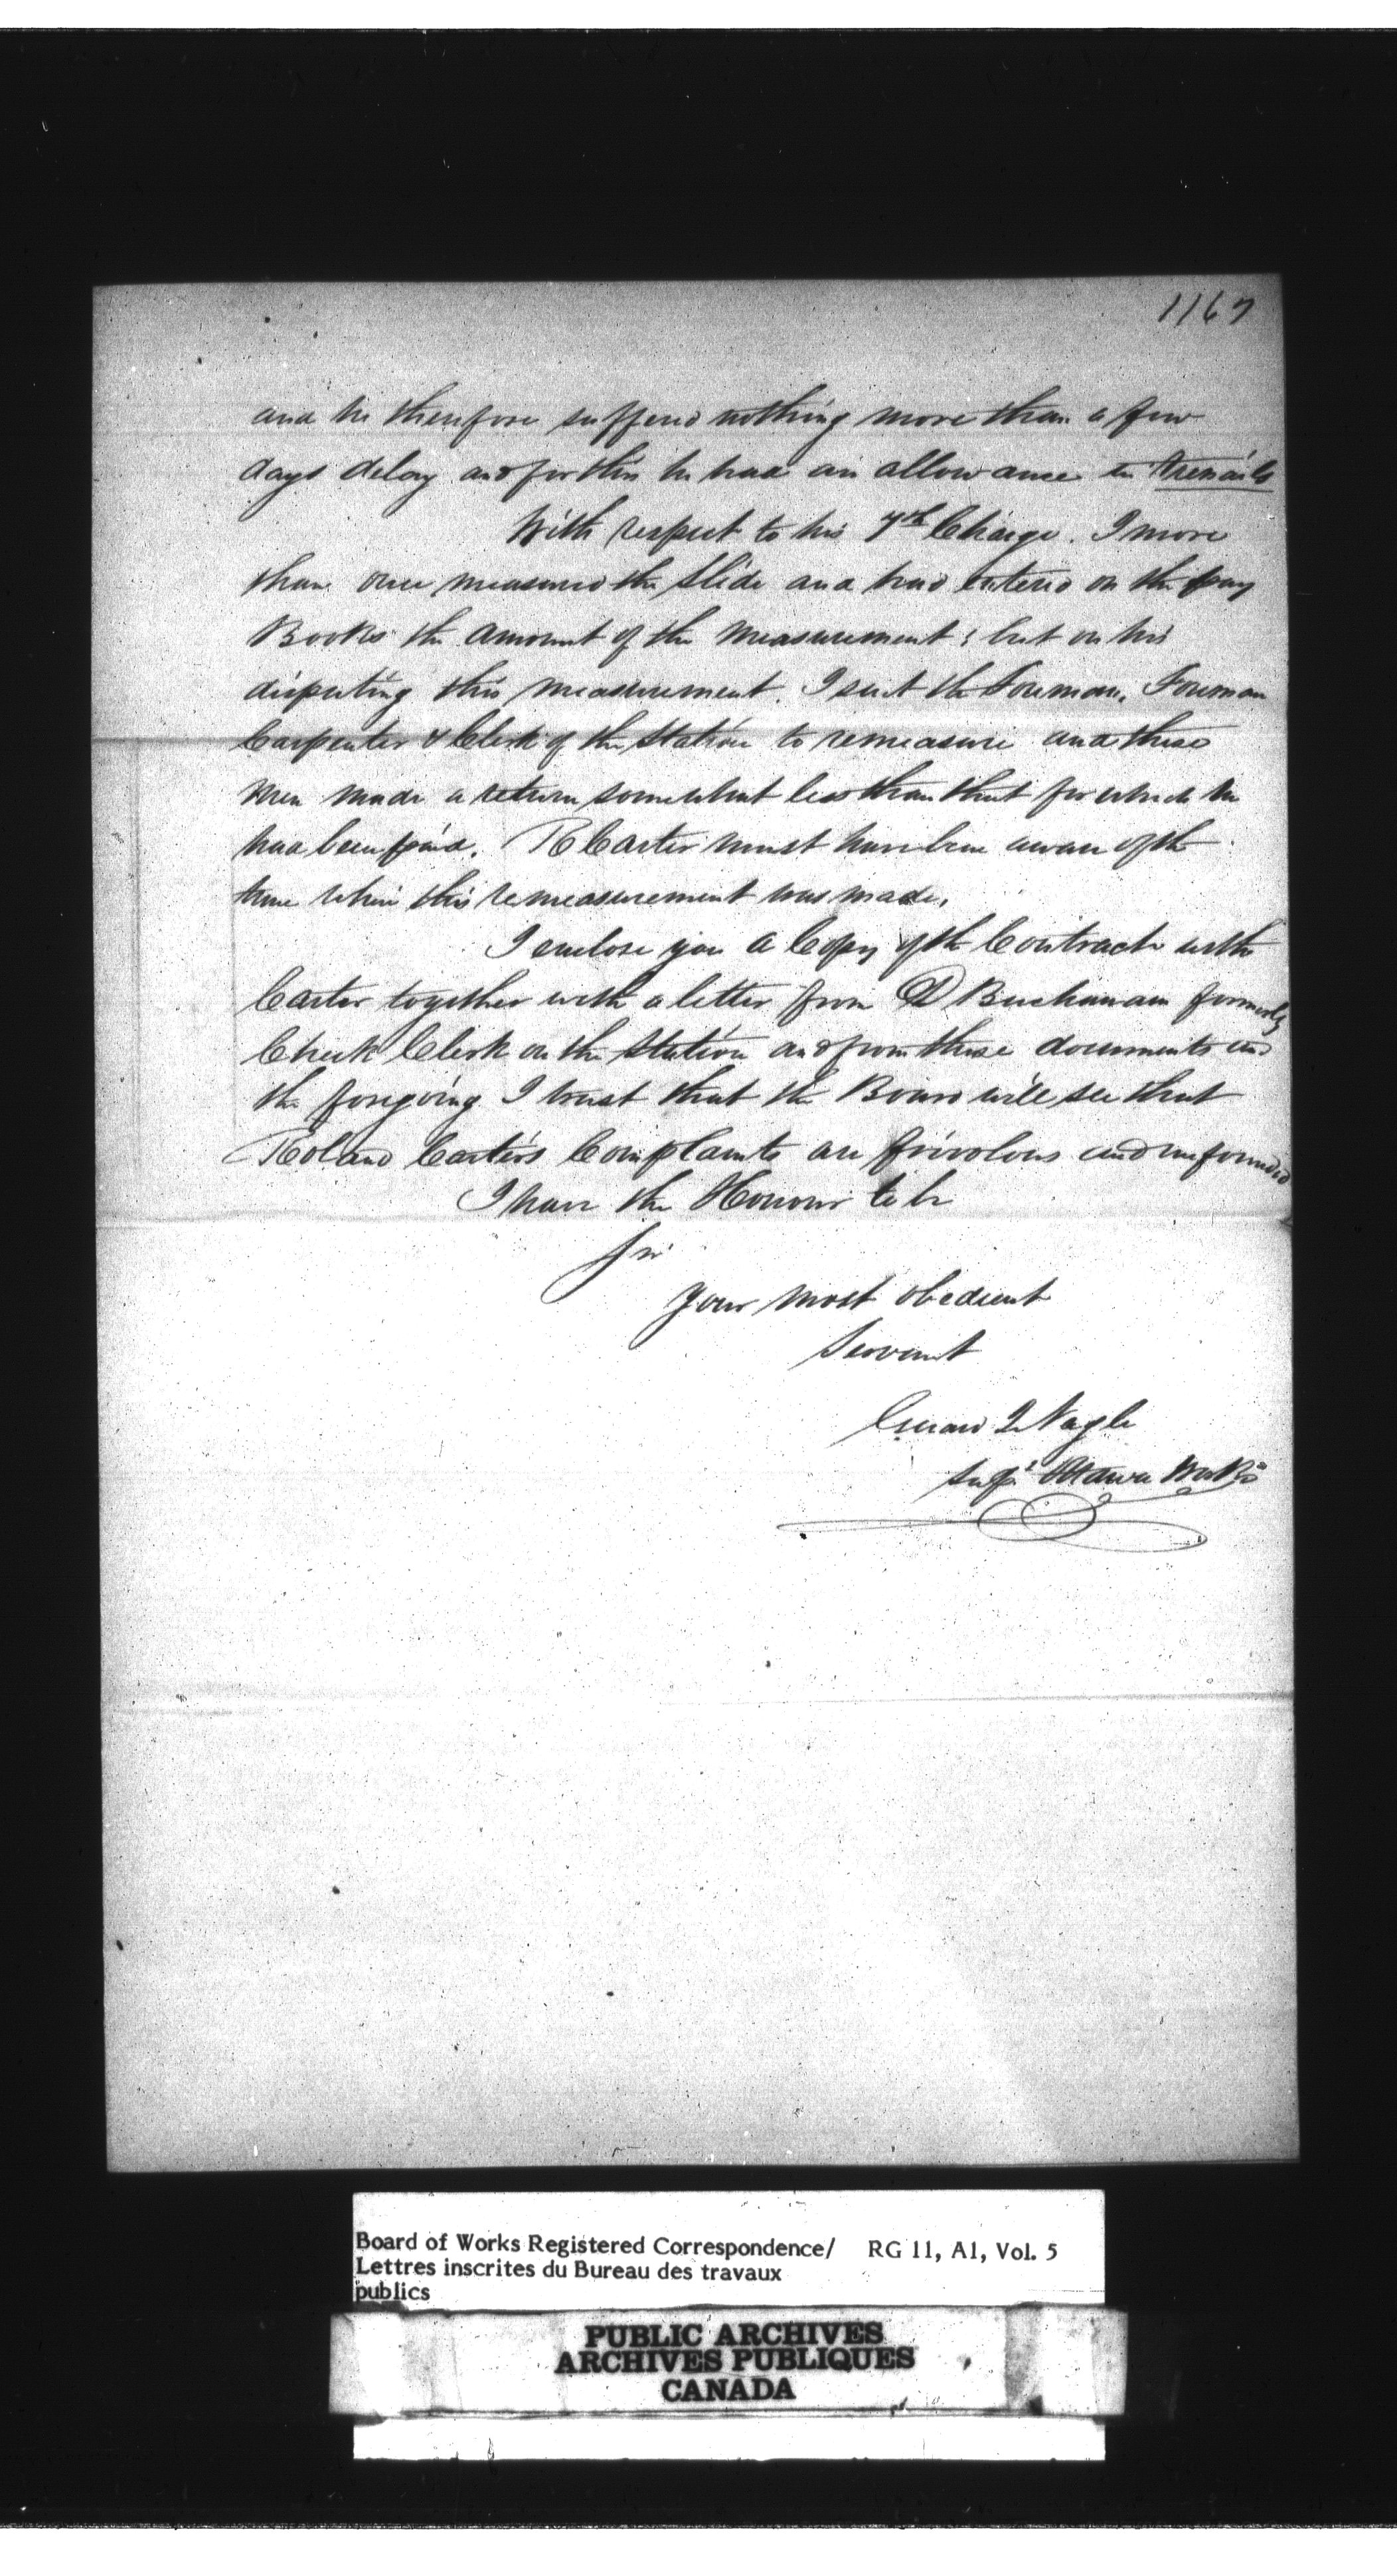 1167
and he therefore suffered nothing more than a few
days delay and for this he had an allowance in trenails
With respect to his 7th Charge. I more
than once measured the Slide and had entered on the pay
Books the amount of the measurement; but on his
disputing this measurement. I sent the Foreman, Foreman
Carpenter & Clerk of the Station to remeasure and these
men made a return somewhat less than that for which he
had been paid. R Carter must have been aware of the
time when this remeasurement was made.
I enclose you a Copy of the Contract with
Carter together with a letter from D Buchanan formerly
Check Clerk on the Station and from these documents and
the foregoing I trust that the Board will see that
Roland Carter's Complaints are frivolous and unfounded
I have the Honour to be
Sir
Your most obedient
Servant
Nagle
Supt Ottawa Works
Board of Works Registered Correspondence/ RG 11, A1, Vol. 5
Lettres inscrites du Bureau des travaux
publics
PUBLIC ARCHIVES
ARCHIVES PUBLIQUES
CANADA